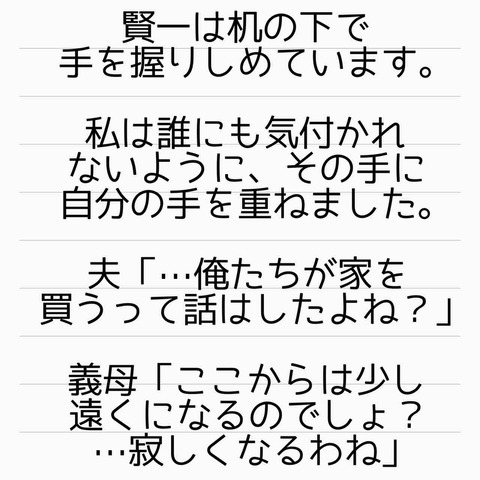 賢一は机の下で
手を握りしめています。
私は誰にも気付かれ
ないように、その手に
自分の手を重ねました。
夫「…俺たちが家を
買うって話はしたよね？」
義母「ここからは少し
遠くになるのでしょ？
…寂しくなるわね」